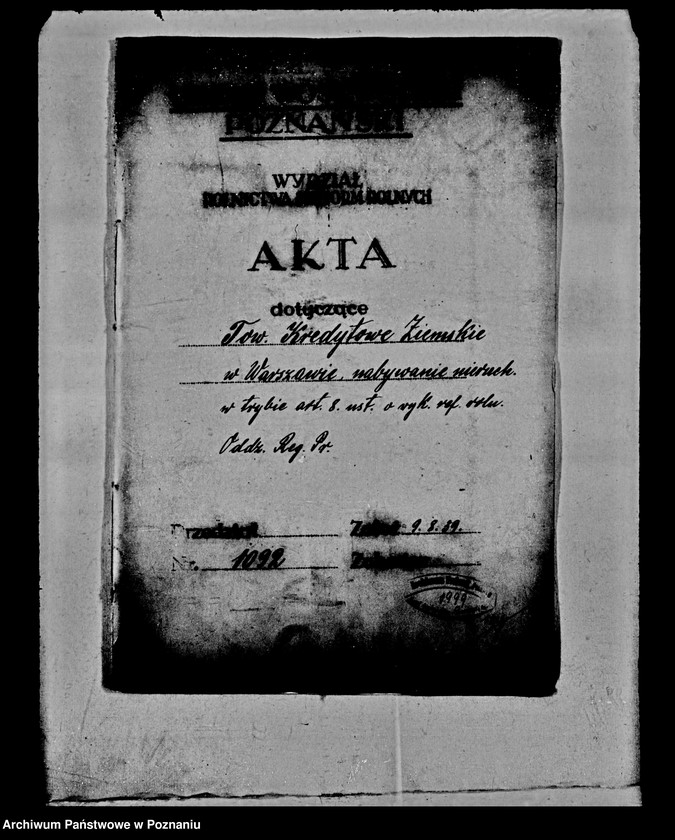 POZNAŃSKI
WYDZIAŁ
ROLNICTWA I REFORM ROLNYCH
AKTA
dotyczące
Tow. Kredytowe Ziemskie
w Warszawie, nabywanie nieruch.
w trybie art. 8. ust. o wyk. ref. roln.
Oddz. Reg. Pr.
9. 8. 39.
Nr. 1092
1999
Archiwum Państwowe w Poznaniu